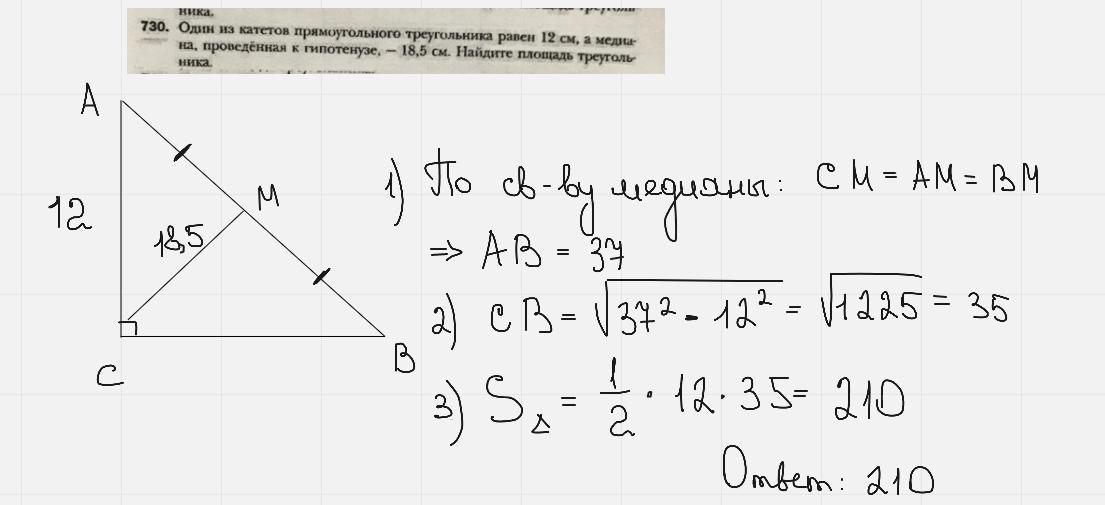 ника.
730. Один из катетов прямоугольного треугольника равен 12 см, а медиа-
на, проведённая к гипотенузе, – 18,5 см. Найдите площадь треуголь-
ника.
A
M
12
18,5
C
B
1) По св-ву медианы: CM = AM = BM
=> AB = 37
2) CB = √37² - 12² = √1225 = 35
3) S△ = 1/2 · 12 · 35 = 210
Ответ: 210